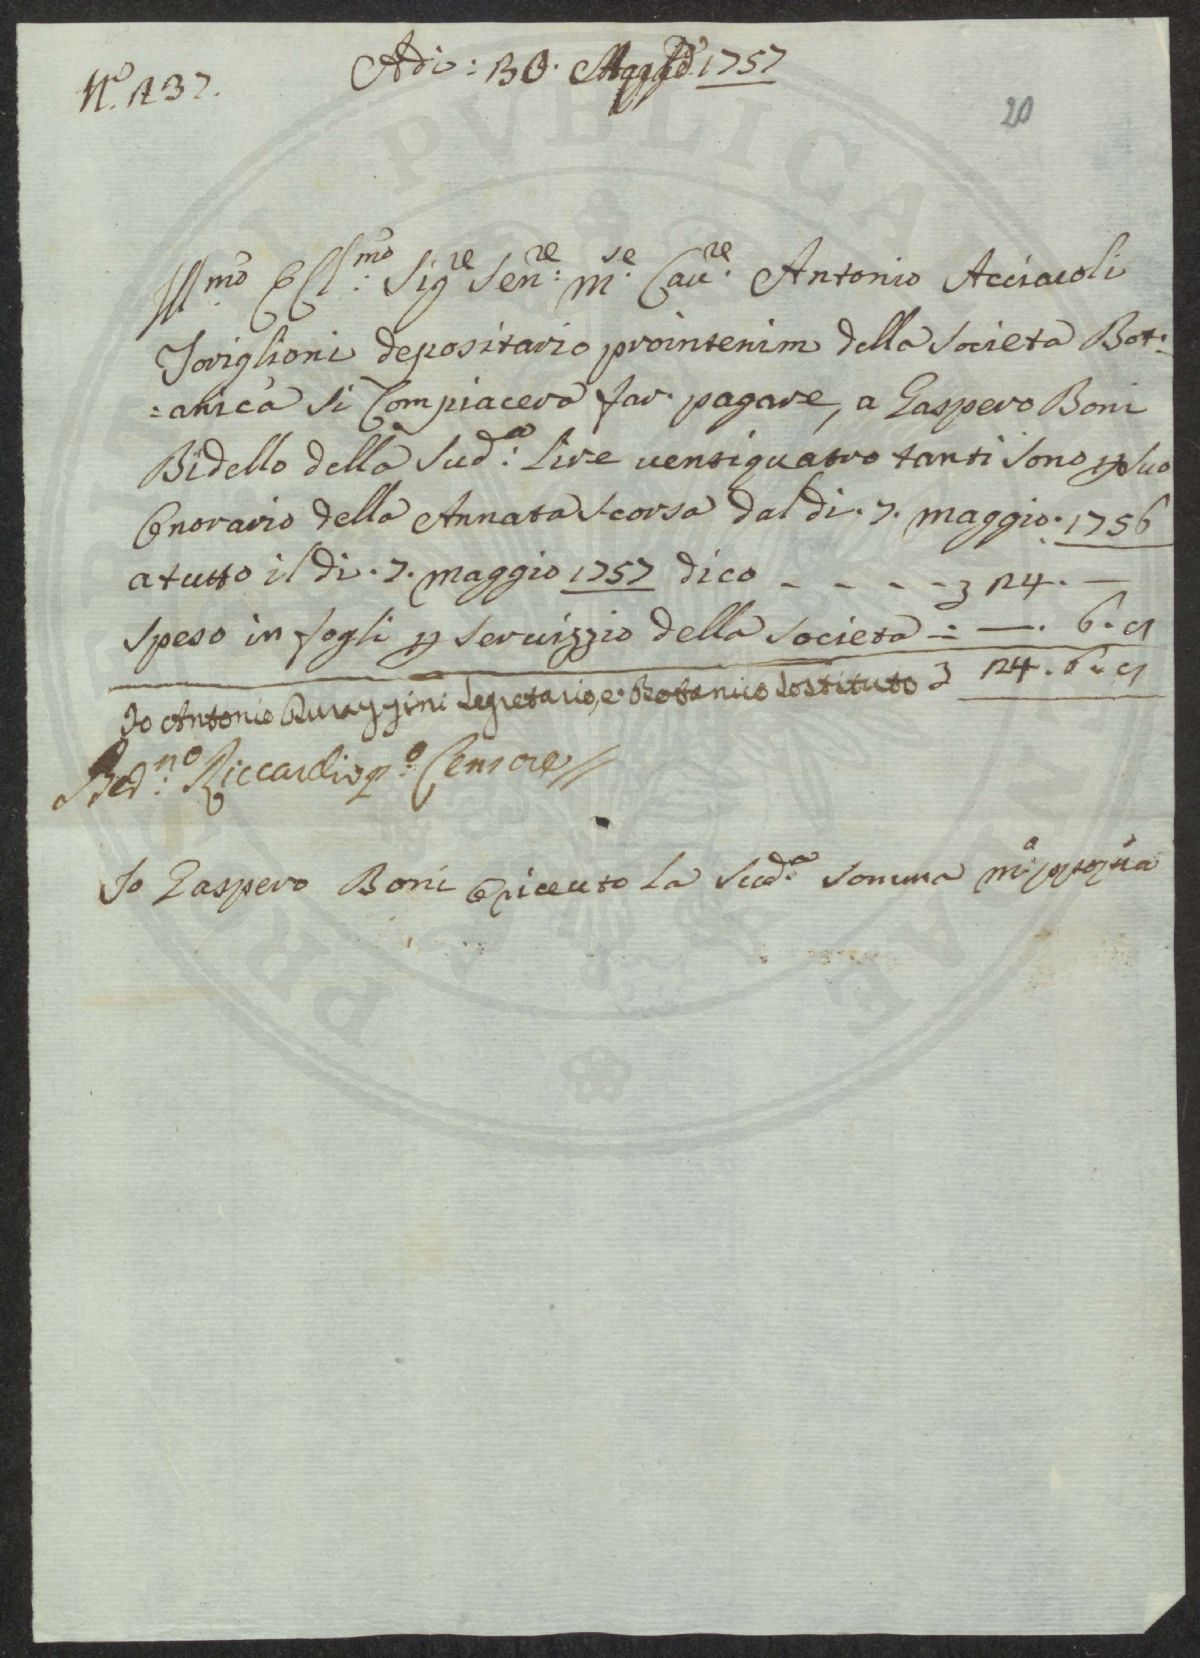 N.o 237.
Adi: 30. Magg.o 1757
20
Ill.mo E Cl.mo Sig.re Sen.re M.se Cav.re Antonio Acciaioli
Toriglioni depositario prointenim della Societa Bot:
=anica si Compiacera far pagare, a Gaspero Boni
Bidello della Sud.a Lire ventiquatro tanti sono p suo
Onorario della Annata Scorsa dal di. 7. maggio. 1756
a tutto il di. 7. maggio 1757 dico - - - - - 24. —
Speso in fogli p servizzio della Societa = —. 6. 8
24. 6. 8
Io Antonio Segretario, e Botanico Sostituto
Bed.no Riccardi Censore
Io Gaspero Boni O riceuto La Sud.a Somma m.o ppropia
PVBLICAE